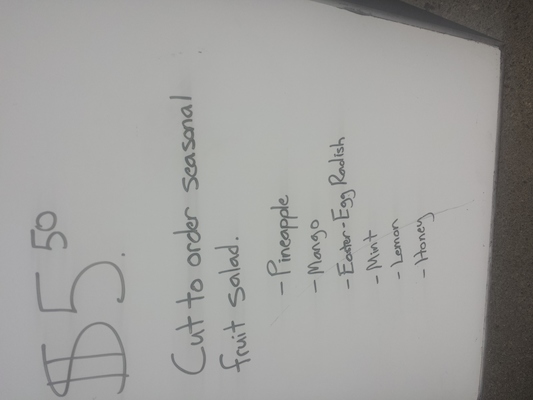 $5.50
Cut to order seasonal
fruit salad.
- Pineapple
- Mango
- Easter-Egg Radish
- Mint
- Lemon
- Honey